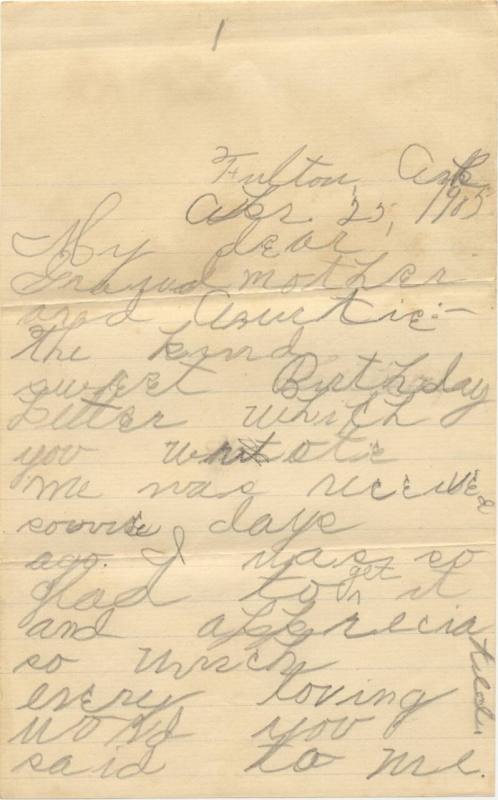 1
Fulton, Ark
Apr. 25, 1905
My dear
Grandmother
and Auntie:—
The kind
sweet Birthday
Letter which
you wrote
me was received
some days
ago. I was so
glad to get it
and appreciated
so much
every loving
word you
said to me.